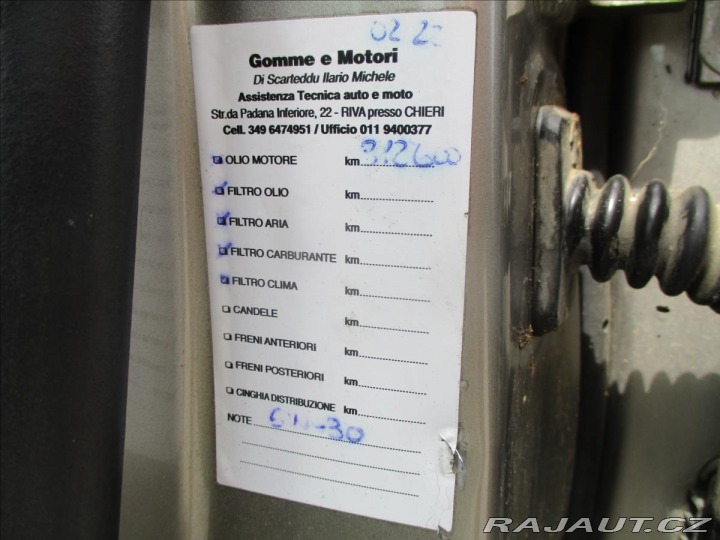 02 22
Gomme e Motori
Di Scarteddu Ilario Michele
Assistenza Tecnica auto e moto
Str.da Padana Inferiore, 22 - RIVA presso CHIERI
Cell. 349 6474951 / Ufficio 011 9400377
OLIO MOTORE km 312600
FILTRO OLIO km
FILTRO ARIA km
FILTRO CARBURANTE km
FILTRO CLIMA km
CANDELE km
FRENI ANTERIORI km
FRENI POSTERIORI km
CINGHIA DISTRIBUZIONE km
NOTE
RAJAUT.CZ